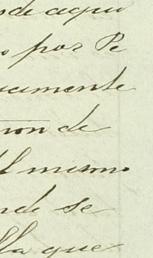 de aqui
por Pe
camente
ion de
el mismo
nde se
lla que